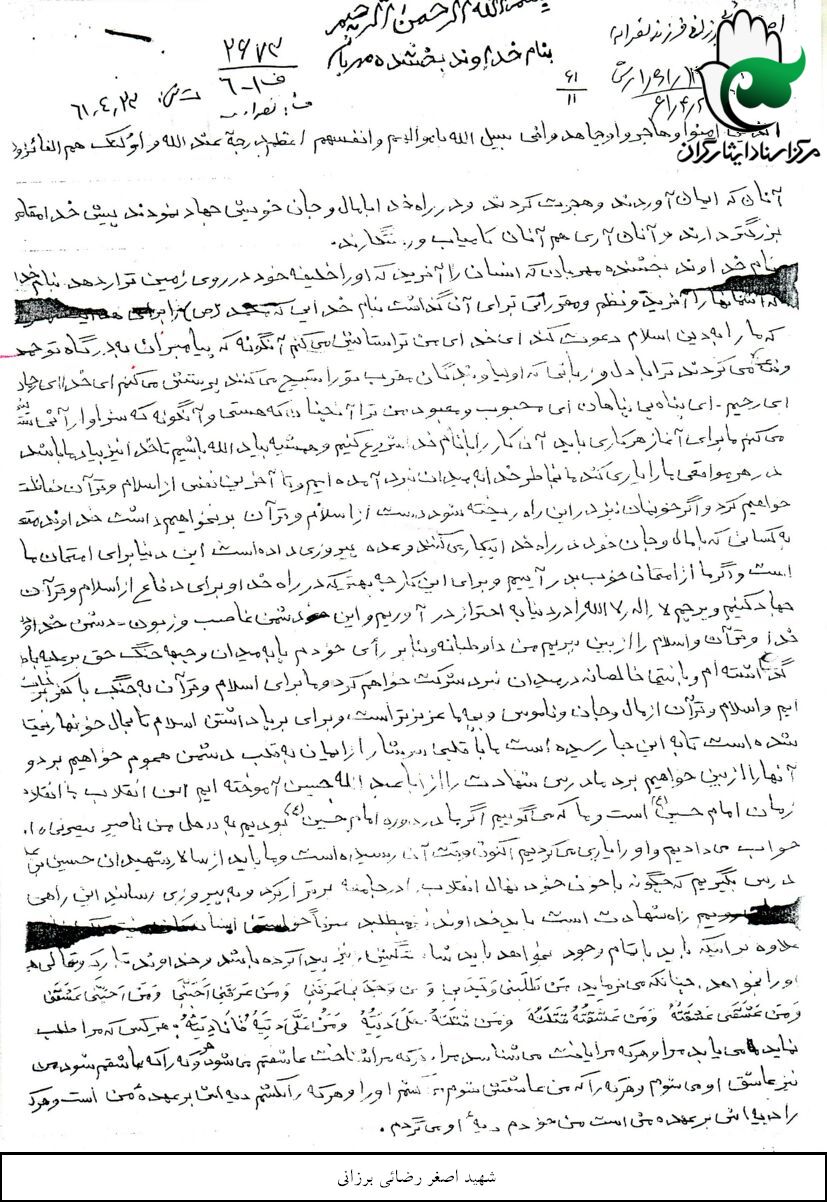 بسم الله الرحمن الرحیم
بنام خداوند بخشنده مهربان
۲۶۷۳
ف ۱-۶
۶۱،۴،۲۳
۶۱
۱۱
مرکز اسناد ایثارگران
امنوا و هاجروا و جاهدوا فی سبیل الله باموالهم و انفسهم اعظم درجة عند الله و اولئک هم الفائزون
آنان که ایمان آوردند و هجرت کردند و در راه خدا با مال و جان خویش جهاد نمودند پیش خدا مقامی
بزرگتر دارند و آنان آری هم آنان کامیاب و رستگارند.
بنام خداوند بخشنده مهربان که انسان را آفرید که او را خلیفه خود در روی زمین قرار دهد بنام خدا
که انسانها را آفرید و نظم و مقرراتی برای آن گذاشت بنام خدایی که محمد (ص) را برای
که ما را به دین اسلام دعوت کند ای خدای من ترا ستایش می کنم آنگونه که پیامبران به درگاه توحید
می کردند ترا با دل و زبانی که اولیا و بندگان مقرب تو را تسبیح می کنند پرستش می کنم ای خدا
ای رحیم - ای پناه بی پناهان ای محبوب و معبود من ترا آنچنان که هستی و آنگونه که سزاوار آنی
می کنم ما برای آغاز هر کاری باید آن کار را با نام خدا شروع کنیم و همیشه بیاد الله باشیم تا خدا نیز بیاد ما باشد
در هر مواقعی ما را یاری کند ما بخاطر خدا به میدان نبرد آمده ایم و تا آخرین نفس از اسلام و قرآن حفاظت
خواهیم کرد و اگر خونمان نیز در این راه ریخته شود دست از اسلام و قرآن بر نخواهیم داشت خداوند
به کسانی که با مال و جان خود در راه خدا پیکار می کنند وعده پیروزی داده است این دنیا برای امتحان ما
است و اگر ما از امتحان خوب بدر آییم و برای این کار چه بهتر که در راه خدا و برای دفاع از اسلام و قرآن
جهاد کنیم و پرچم لا اله الا الله را در دنیا به اهتزاز در آوریم و این دشمن غاصب و زبون - دشمن خدا و
خدا و قرآن و اسلام را از بین ببریم من داوطلبانه و بنا بر رأی خودم پا به میدان و جبهه جنگ حق بر علیه باطل
گذاشته ام و با نیتها خالصانه در میدان نبرد شرکت خواهم کرد و ما برای اسلام و قرآن به جنگ با کفر
ایم و اسلام و قرآن از مال و جان و ناموس و بچه ما عزیزتر است و برای بر پا داشتن اسلام تا بحال خونها ریخته
شده است تا به اینجا رسیده است ما با قلبی سرشار از ایمان به قلب دشمن هجوم خواهیم برد و
آنها را از بین خواهیم برد ما درس شهادت را از ابا عبدالله حسین آموخته ایم این انقلاب با انقلاب
زمان امام حسین (ع) است و ما که می گوییم اگر ما در دوره امام حسین (ع) بودیم به هل من ناصر ینصرنی
جواب می دادیم و او را یاری می کردیم اکنون وقت آن رسیده است و ما باید از سالار شهیدان حسین بن
درس بگیریم که چگونه با خون خود نهال انقلاب را در جامعه برقرار کرد و به پیروزی رسانید این راهی
راه شهادت است باید خداوند بطلبد
علاوه بر اینکه باید با تمام وجود بخواهد باید شایستگیش نیز پیدا کرده باشد و خداوند تبارک و تعالی
او را بخواهد. چنانکه می فرماید. مَن طَلَبَنی وَجَدَنی وَ مَن وَجَدَنی عَرَفَنی وَمَن عَرَفَنی اَحَبَّنی وَمَن اَحَبَّنی عَشَقَنی
وَمَن عَشَقَنی عَشَقتُهُ وَمَن عَشَقتُهُ قَتَلتُهُ وَمَن قَتَلتُهُ فَعَلَیَّ دِیَتُهُ وَمَن عَلَیَّ دِیَتُهُ فَاَنَا دِیَتُهُ: هر کس که مرا طلب
نماید می یابد مرا و هر که مرا یافت می شناسد مرا، و هر که مرا شناخت عاشقم می شود و هر که عاشقم شود من
نیز عاشق او می شوم و هر که را که من عاشقش شوم می کشم او را و هر که را بکشم دیه اش بر عهده من است و هر که
را دیه اش بر عهده من است من خودم دیه او می گردم.
شهید اصغر رضائی برزانی